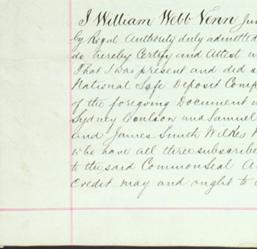 I William Webb Venn
by Royal Authority duly admitted
do hereby Certify and Attest
That I was present and did
National Safe Deposit
of the foregoing Document
Sydney Coulson and Samuel
and James Smith Wilkes
who have all three subscribe
to the said Common Seal
Credit may and ought to